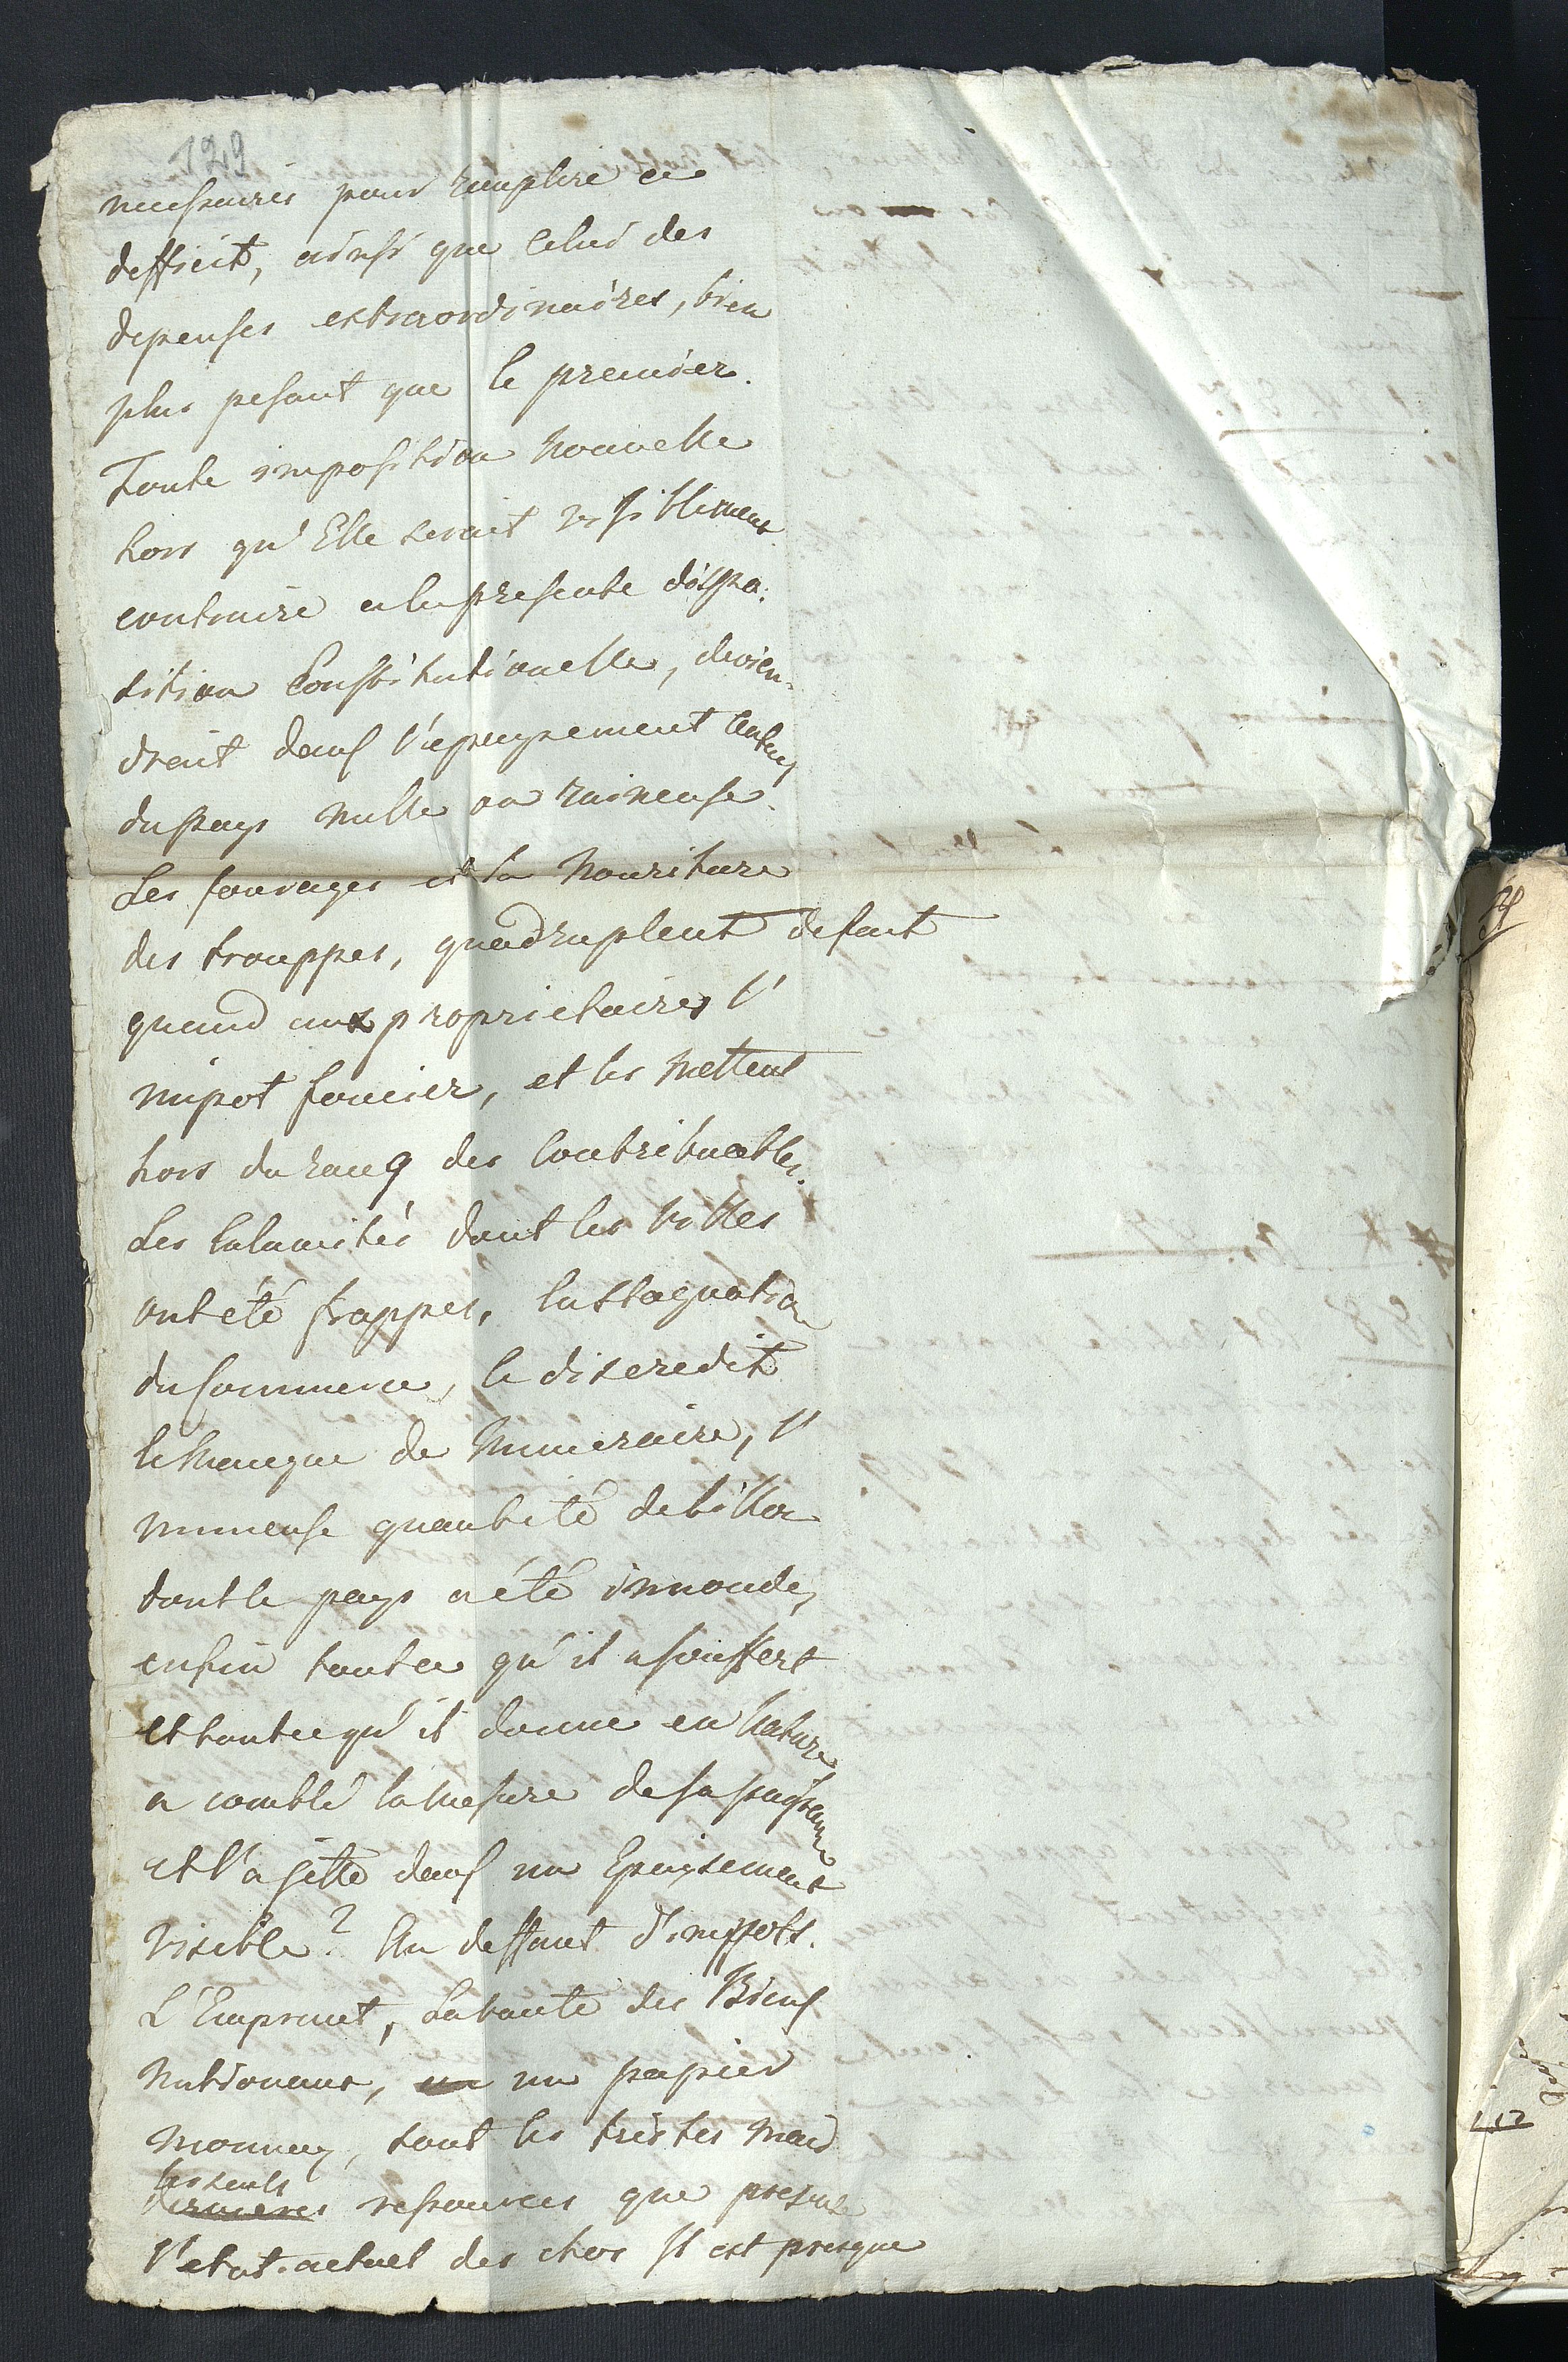 129
necessaires pour remplire ce
defficit, ainsi que celui des
depenses extraordinaires, bien
plus pesant que le premier.
Toute imposition nouvelle
hors qu'Elle serait visiblement
contraire a la presente dispo-
sition Constitutionelle, devien-
drait dans l'epuysement
du pays nulle ou ruineuse.
Les fourages et la nouriture
des trouppes, quadruplent de fait
quand aux proprietaires l'
impot foncier, et les mettent
hors du rang des Contribuables.
Les calamités dont les villes
ont été frappés, la stagnation
du commerce, le discredit
le manque de numeraire, l'
immense quantité de billon
dont le pays a été innondé,
enfin tout ce qu'il a souffert
et tout ce qu'il donne en nature
a comblé la mesure de sa
et l'a jetté dans un Epuisement
visible? Au deffaut d'impots.
L'Emprunt, la vante des Biens
nationaux, un papier
monnay, sont les tristes mais
les seuls
dernieres ressources que
l'etat actuel des chos Il est presque